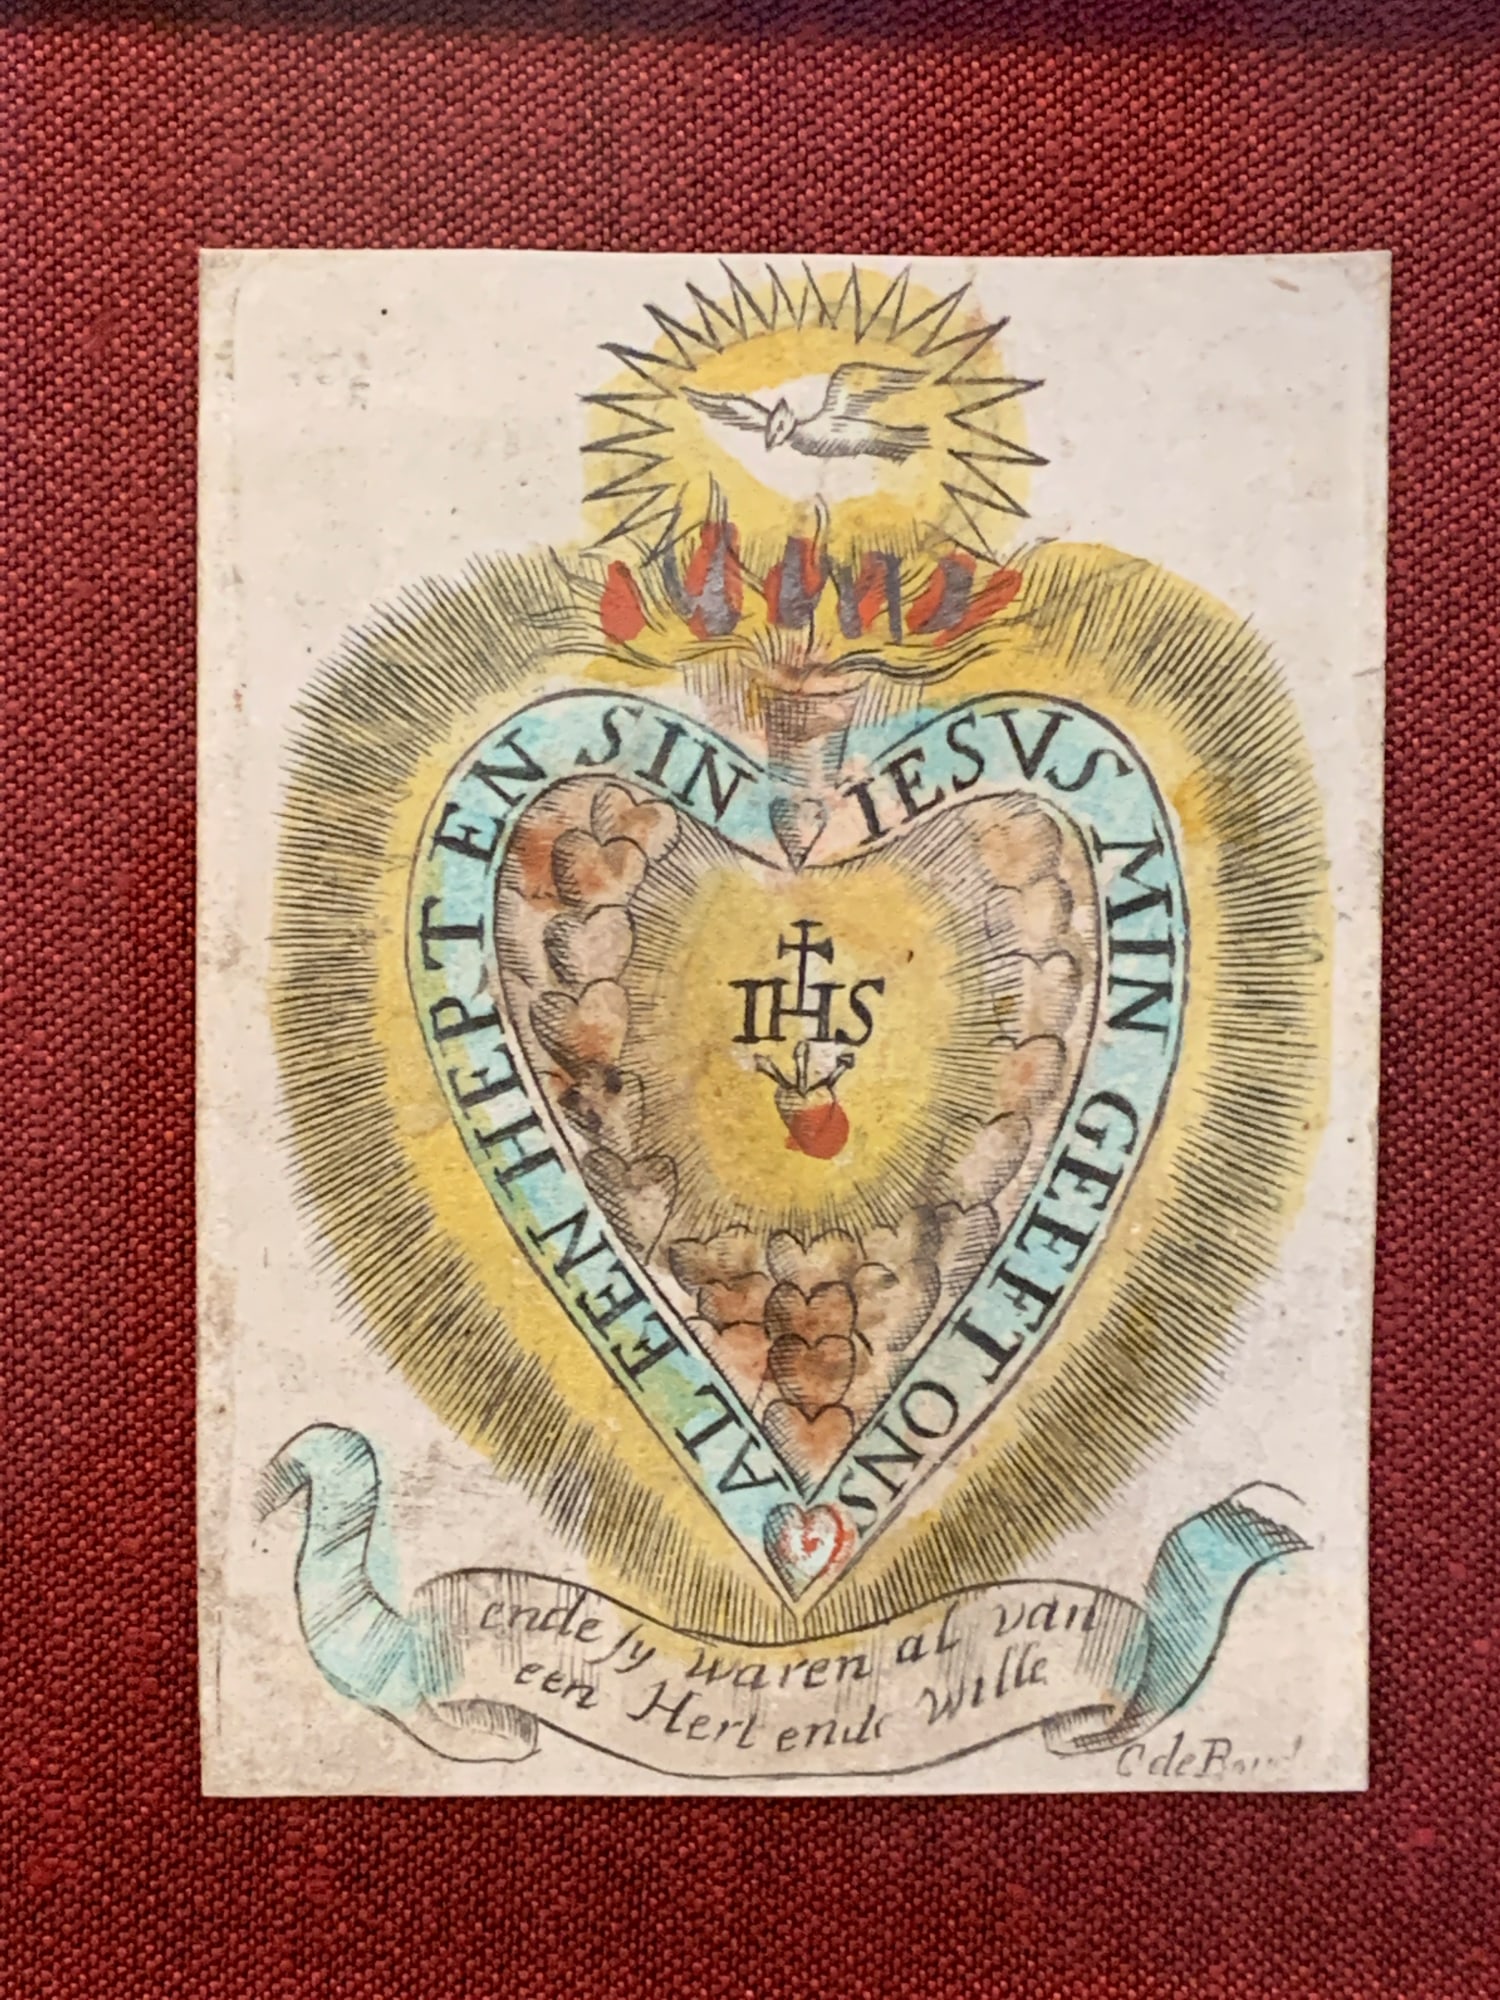 IESVS MIN GEEFT ONS
AL EEN HERT EN SIN
IHS
ende sy waren al van
een Hert ende wille
C de